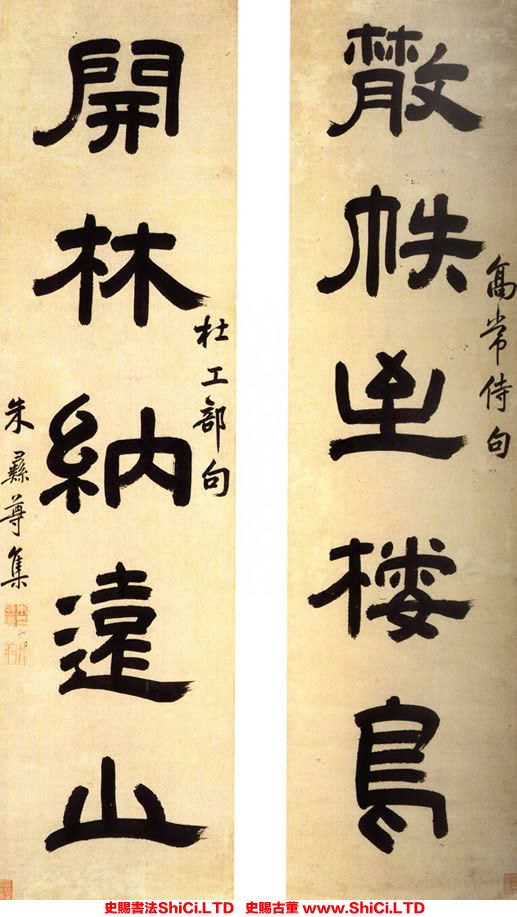 散帙至棲鳥
高常侍句
開林納遠山
杜工部句
朱彝尊集
史賜書法ShiCi.LTD 史賜古董 www.ShiCi.LTD